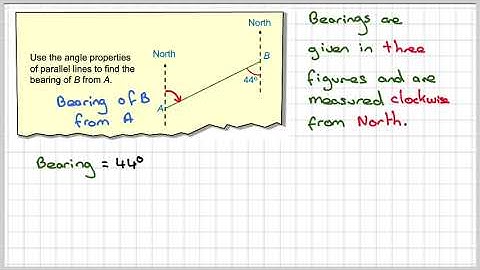 North
North
B
44°
Use the angle properties
of parallel lines to find the
bearing of B from A.
A
Bearing of B
from A
Bearings are
given in three
figures and are
measured clockwise
from North.
Bearing = 44°